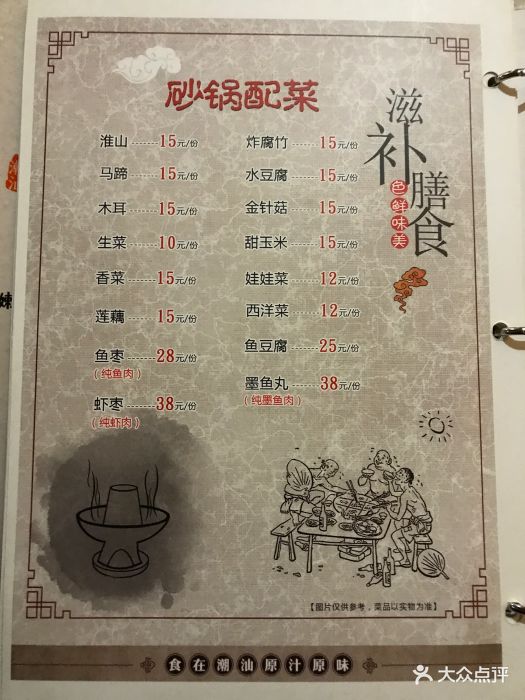 砂锅配菜
滋补膳食
色鲜味美
淮山------15元/份
炸腐竹------15元/份
马蹄------15元/份
水豆腐------15元/份
木耳------15元/份
金针菇------15元/份
生菜------10元/份
甜玉米------15元/份
香菜------15元/份
娃娃菜------12元/份
莲藕------15元/份
西洋菜------12元/份
鱼枣------28元/份
(纯鱼肉)
鱼豆腐------25元/份
虾枣------38元/份
(纯虾肉)
墨鱼丸------38元/份
(纯墨鱼肉)
【图片仅供参考，菜品以实物为准】
食在潮汕原汁原味
大众点评